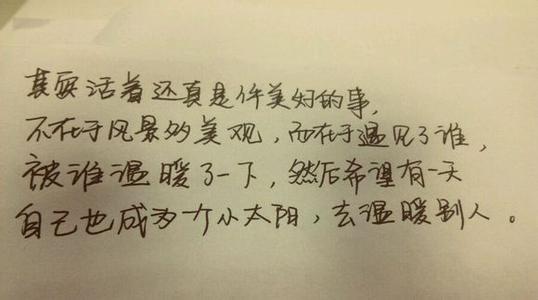 其实活着还真是件美好的事,
不在于风景多美观,而在于遇见了谁,
被谁温暖了一下,然后希望有一天
自己也成为个小太阳,去温暖别人。